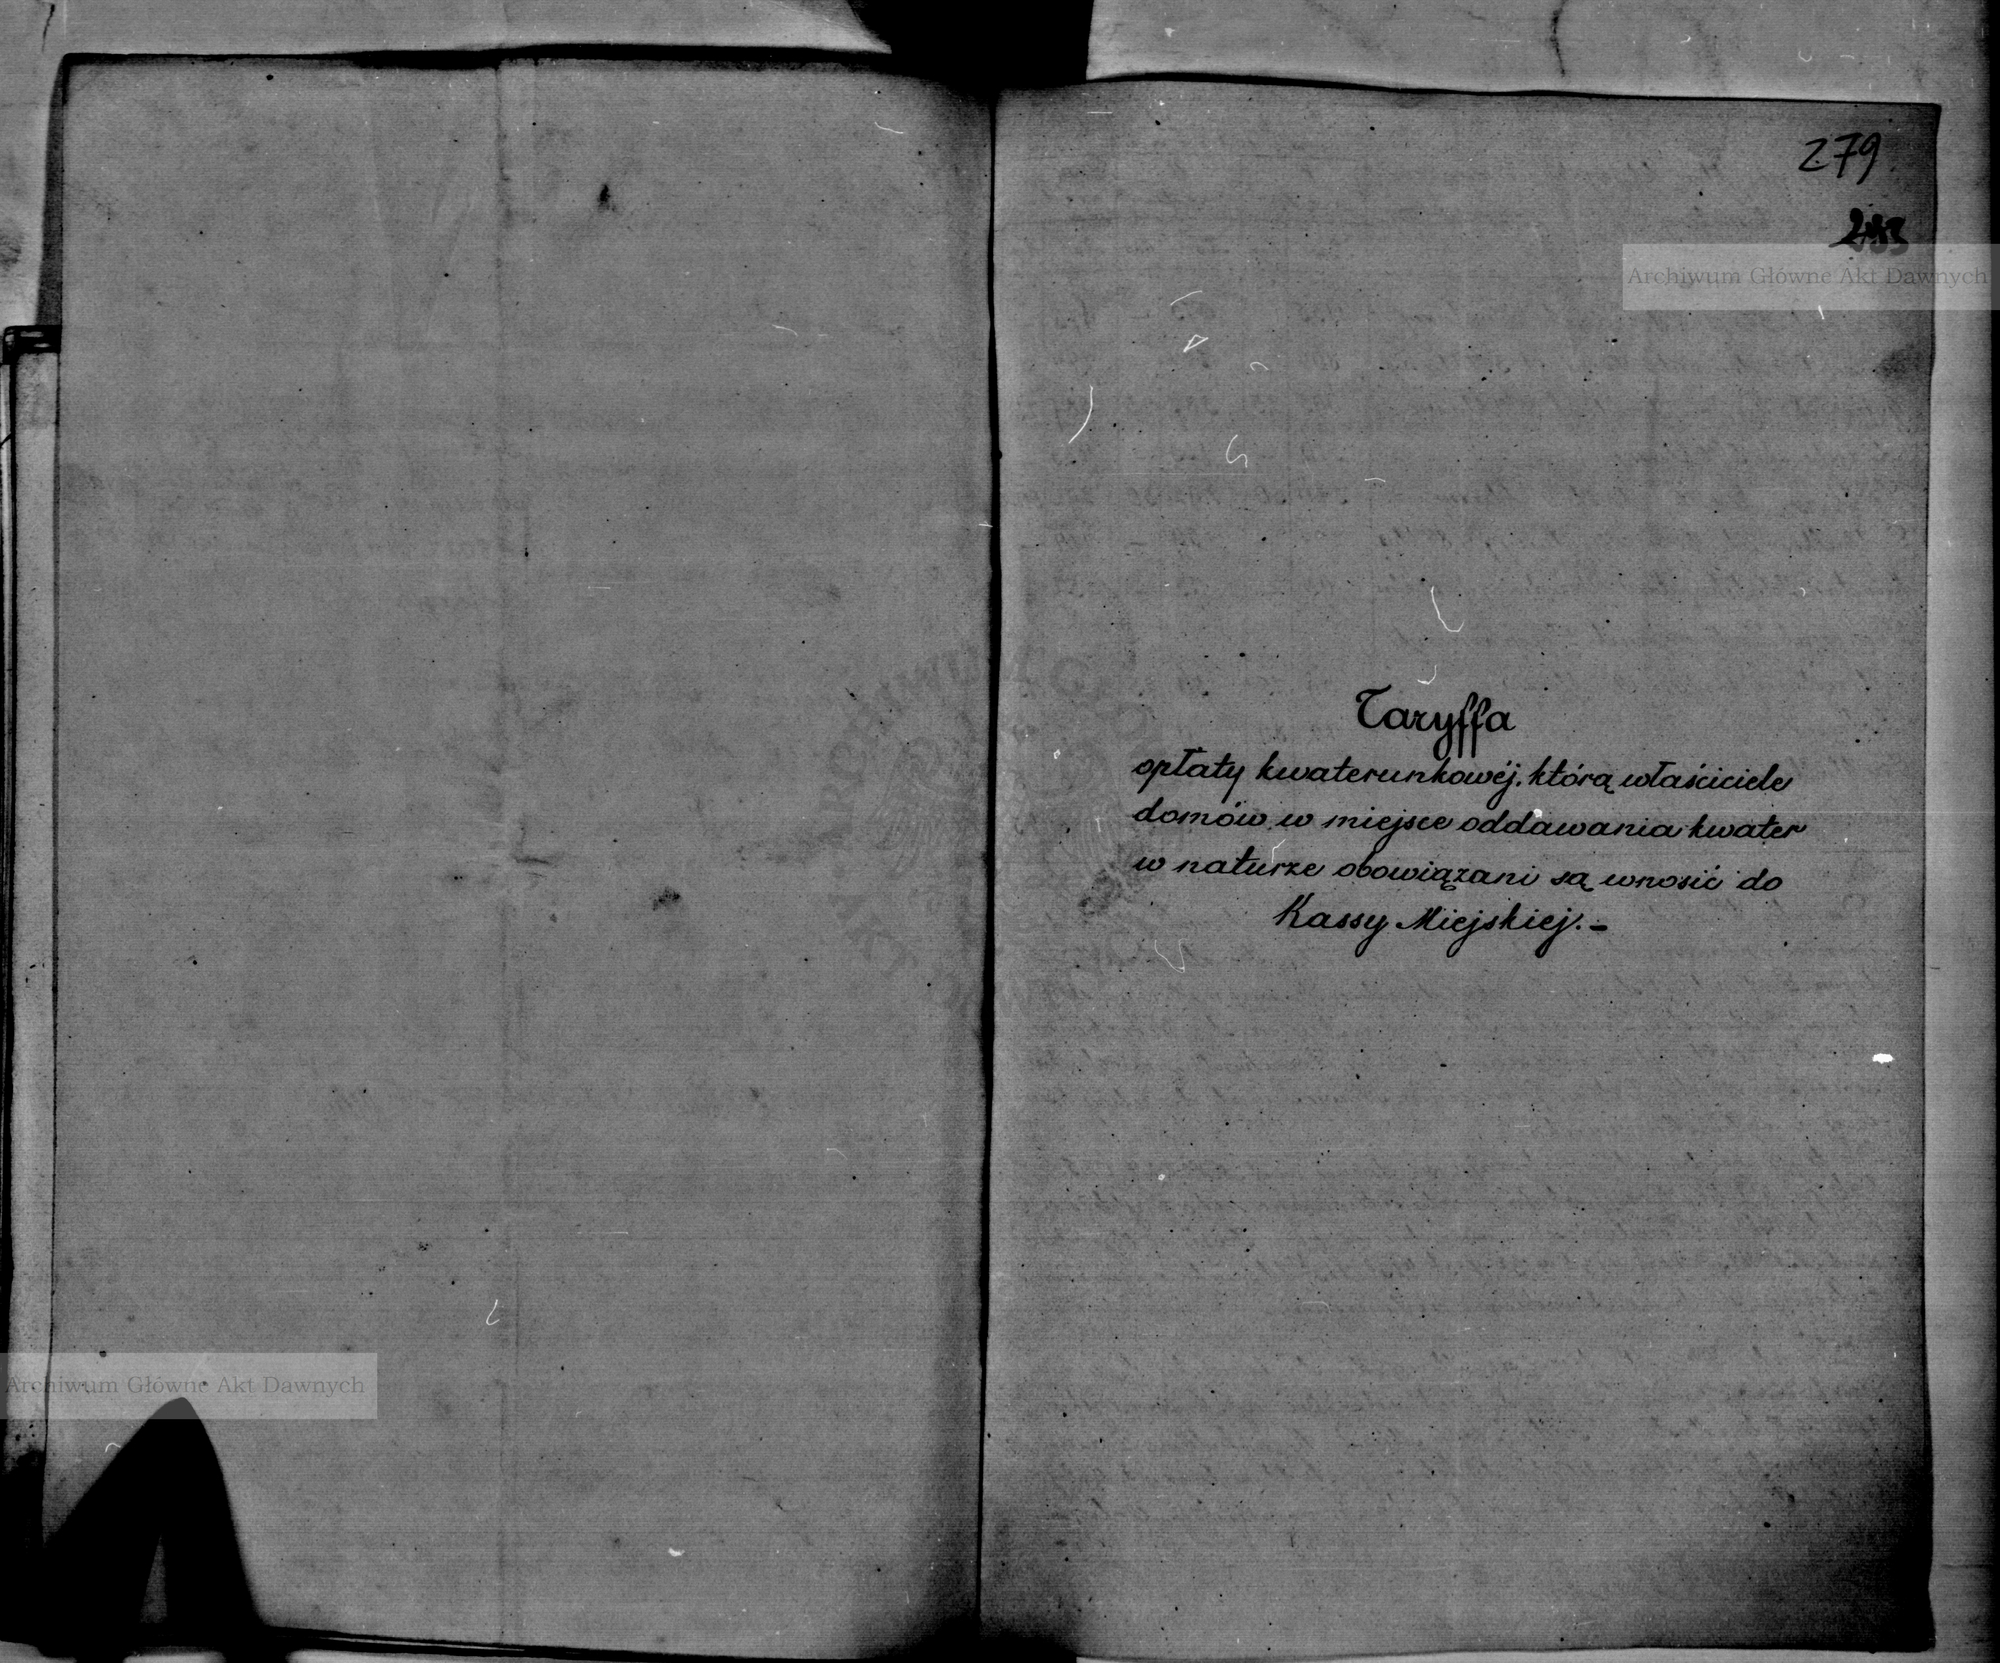 279
Archiwum Główne Akt Dawnych
Taryffa
opłaty kwaterunkowéj, którą właściciele
domów w miejsce oddawania kwater
w naturze obowiązani są wnosić do
Kassy Miejskiej. –
Archiwum Główne Akt Dawnych